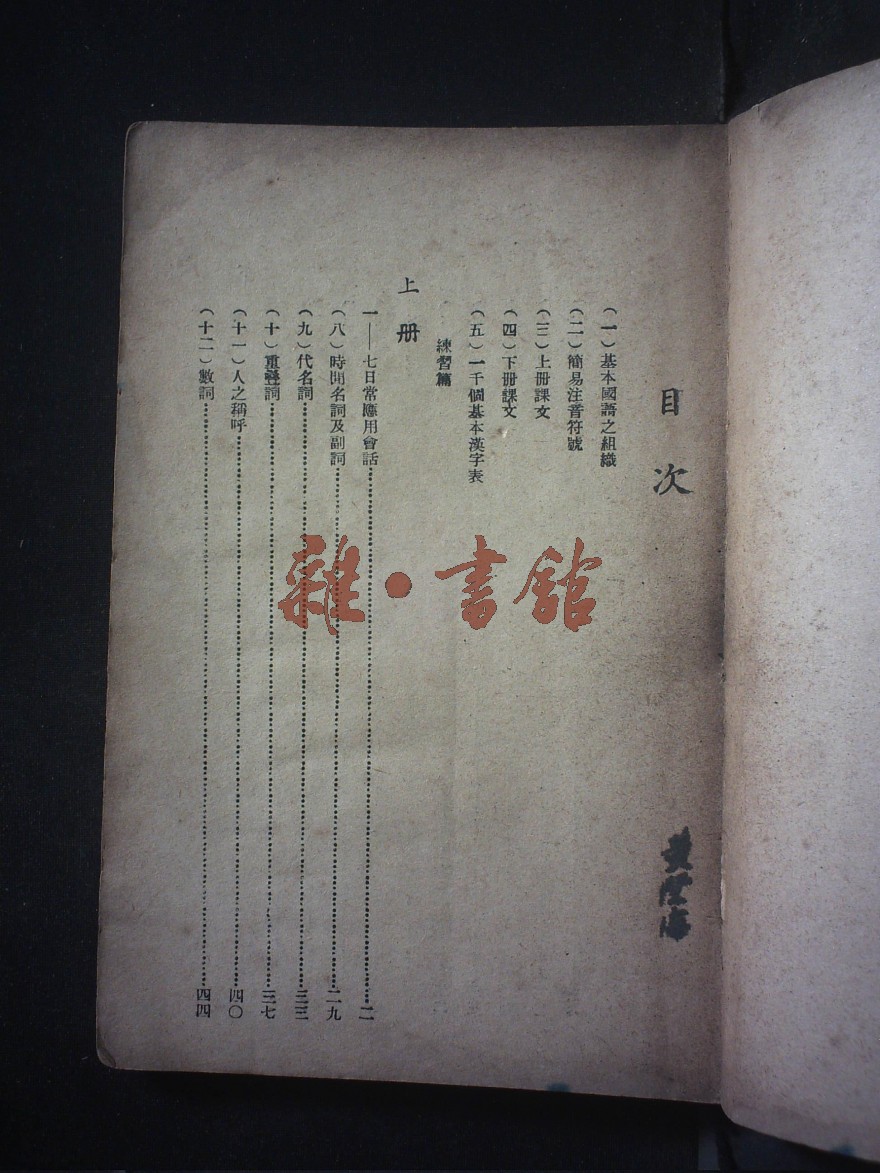 目次
(一)基本國語之組織
(二)簡易注音符號
(三)上册課文
(四)下册課文
(五)一千個基本漢字表
練習篇
上册
一——七日常應用會話……二
(八)時間名詞及副詞……二九
(九)代名詞……三三
(十)重疊詞……三七
(十一)人之稱呼……四〇
(十二)數詞……四四
雜·書館